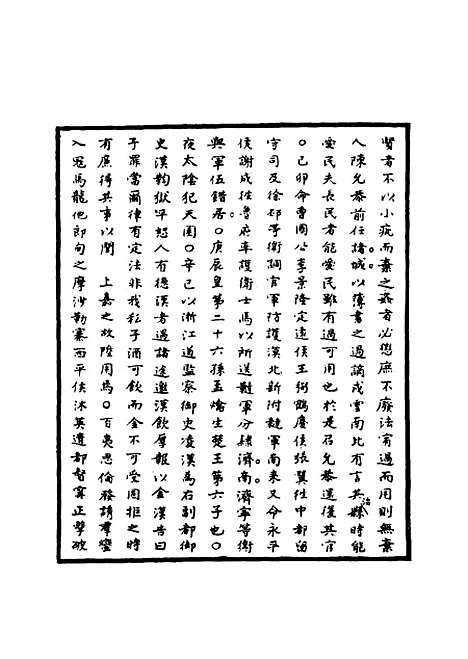 賢者不以小疵而棄之若者必懲庶不廢法宥過而用則無棄
人陳允恭前任諸城以簿書之過謫戍雲南比有言其縣治時能
愛民夫長民者能愛民雖有過可用也於是召允恭還復其官
○己卯命曹國公李景隆定遠侯王弼鶴慶侯張翼往中都留
守司及徐邳等衛調官軍防護漠北新附韃軍南來又令永平
侯謝成往魯府率護衛士馬以所送韃軍分隸濟南濟寧等衛
與軍伍錯居○庚辰皇第二十六孫孟燔生楚王第六子也○
夜太陰犯天囷○辛巳以浙江道監察御史凌漢為右副都御
史漢鞫獄平恕人有德漢者遇諸途邀漢飲厚報以金漢告曰
子罪當爾律有定法非我私子酒可飲而金不可受固拒之時
有廉得其事以聞　上嘉之故陞用焉○百夷思倫發誘羣蠻
入冦馬龍他郎甸之摩沙勒寨西平侯沐英遣都督甯正擊破